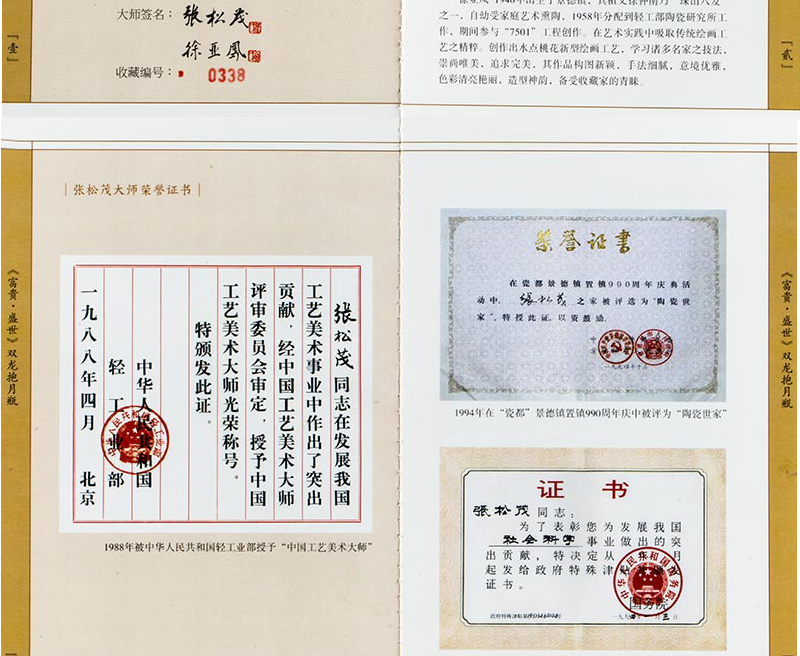 『壹』
大师签名：张松茂
徐亚凤
收藏编号： 0338
之一，自幼受家庭艺术熏陶，1958年分配到轻工部陶瓷研究所工
作，期间参与“7501”工程创作。在艺术实践中吸取传统绘画工
艺之精粹。创作出水点桃花新型绘画工艺，学习诸多名家之技法，
崇尚唯美，追求完美，其作品构图新颖，手法细腻，意境优雅，
色彩清亮艳丽，造型神韵，备受收藏家的青睐。
『贰』
《富贵·盛世》双龙抱月瓶
张松茂大师荣誉证书
张松茂同志在发展我国
工艺美术事业中作出了突出
贡献，经中国工艺美术大师
评审委员会审定，授予中国
工艺美术大师光荣称号。
特颁发此证。
中华人民共和国
轻工业部
一九八八年四月 北京
1988年被中华人民共和国轻工业部授予“中国工艺美术大师”
荣誉证书
在瓷都景德镇置镇990周年庆典活
动中，张松茂之家被评选为“陶瓷世
家”，特授此证，以资鼓励。
一九九四年十月
1994年在“瓷都”景德镇置镇990周年庆中被评为“陶瓷世家”
证书
张松茂同志：
为了表彰您为发展我国
社会科学事业做出的突
出贡献，特决定从 年 月
起发给政府特殊津贴
证书。
中华人民共和国国务院
国务院
一九九四年一月三日
《富贵·盛世》双龙抱月瓶